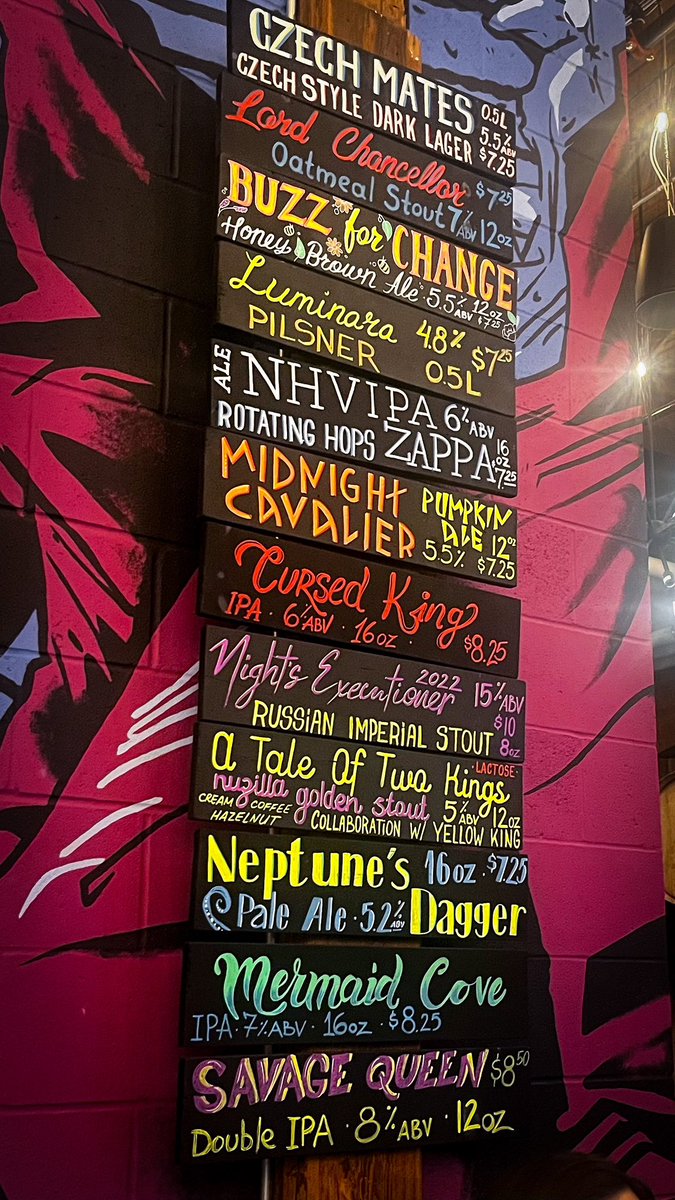 CZECH MATES 0.5L
CZECH STYLE DARK LAGER 5.5% ABV $7.25
Lord Chancellor $7.25
Oatmeal Stout 7% ABV 12oz
BUZZ for CHANGE
Honey Brown Ale · 5.5% ABV 12oz $7.25
Luminara 4.8% $7.25
PILSNER 0.5L
ALE NHVIPA 6% ABV 16oz
ROTATING HOPS ZAPPA $7.25
MIDNIGHT PUMPKIN
CAVALIER ALE 12oz
5.5% $7.25
Cursed King
IPA · 6% ABV · 16oz · $8.25
Night's Executioner 2022 15% ABV
RUSSIAN IMPERIAL STOUT $10 8oz
A Tale Of Two Kings · LACTOSE ·
nuzilla golden stout 5% ABV 12oz
CREAM COFFEE HAZELNUT COLLABORATION W/ YELLOW KING
Neptune's 16oz · $7.25
Pale Ale · 5.2% ABV Dagger
Mermaid Cove
IPA · 7% ABV · 16oz · $8.25
SAVAGE QUEEN $8.50
Double IPA · 8% ABV · 12oz